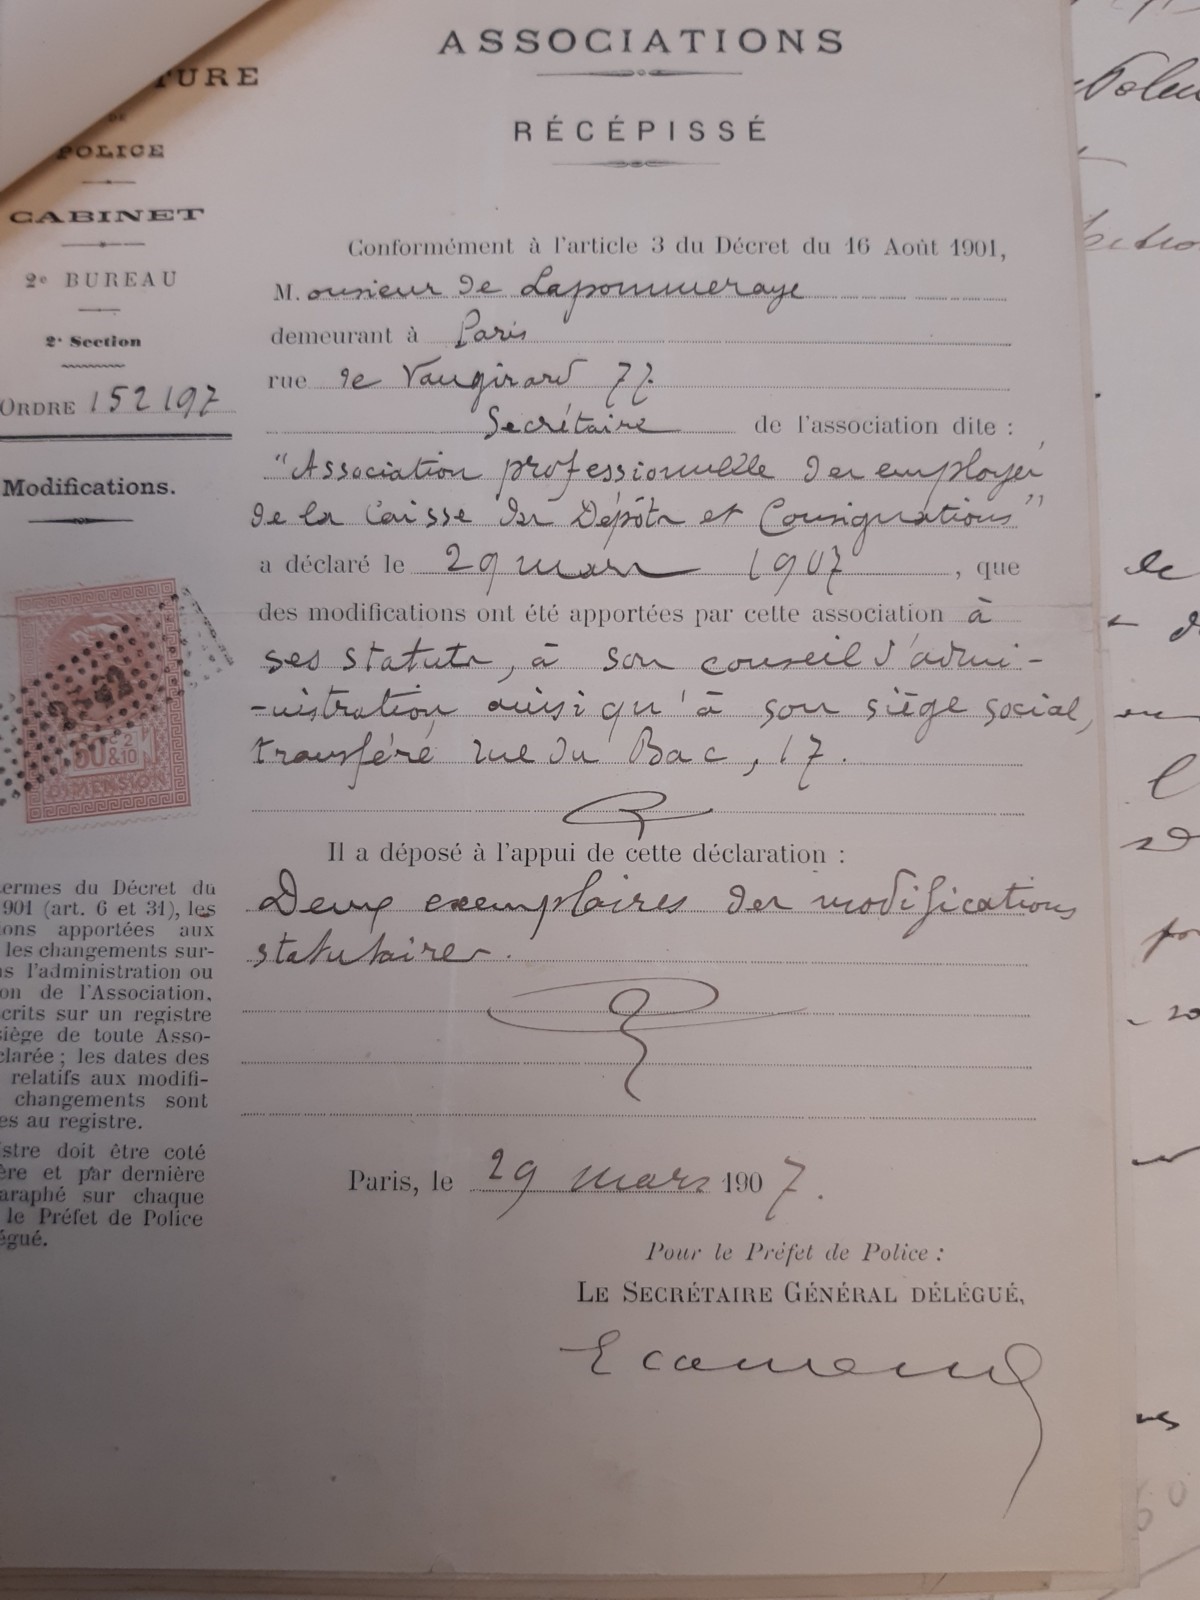 ASSOCIATIONS
RÉCÉPISSÉ
TURE
DE
POLICE
CABINET
2e BUREAU
2e Section
ORDRE 152197
Modifications.
2/10
DIMENSION
ermes du Décret du
901 (art. 6 et 31), les
ons apportées aux
les changements sur-
ns l'administration ou
on de l'Association,
crits sur un registre
siège de toute Asso-
clarée ; les dates des
relatifs aux modifi-
changements sont
es au registre.
stre doit être coté
ère et par dernière
araphé sur chaque
le Préfet de Police
égué.
Conformément à l'article 3 du Décret du 16 Août 1901,
Monsieur de Lapommeraye
demeurant à Paris
rue de Vaugirard 77
Secrétaire de l'association dite :
"Association professionnelle des employés
de la Caisse des Dépôts et Consignations"
a déclaré le 29 mars 1907, que
des modifications ont été apportées par cette association à
ses statuts, à son conseil d'admi-
-nistration ainsi qu'à son siège social,
transféré rue du Bac, 17.
Il a déposé à l'appui de cette déclaration :
Deux exemplaires des modifications
statutaires.
Paris, le 29 mars 1907.
Pour le Préfet de Police :
LE SECRÉTAIRE GÉNÉRAL DÉLÉGUÉ,